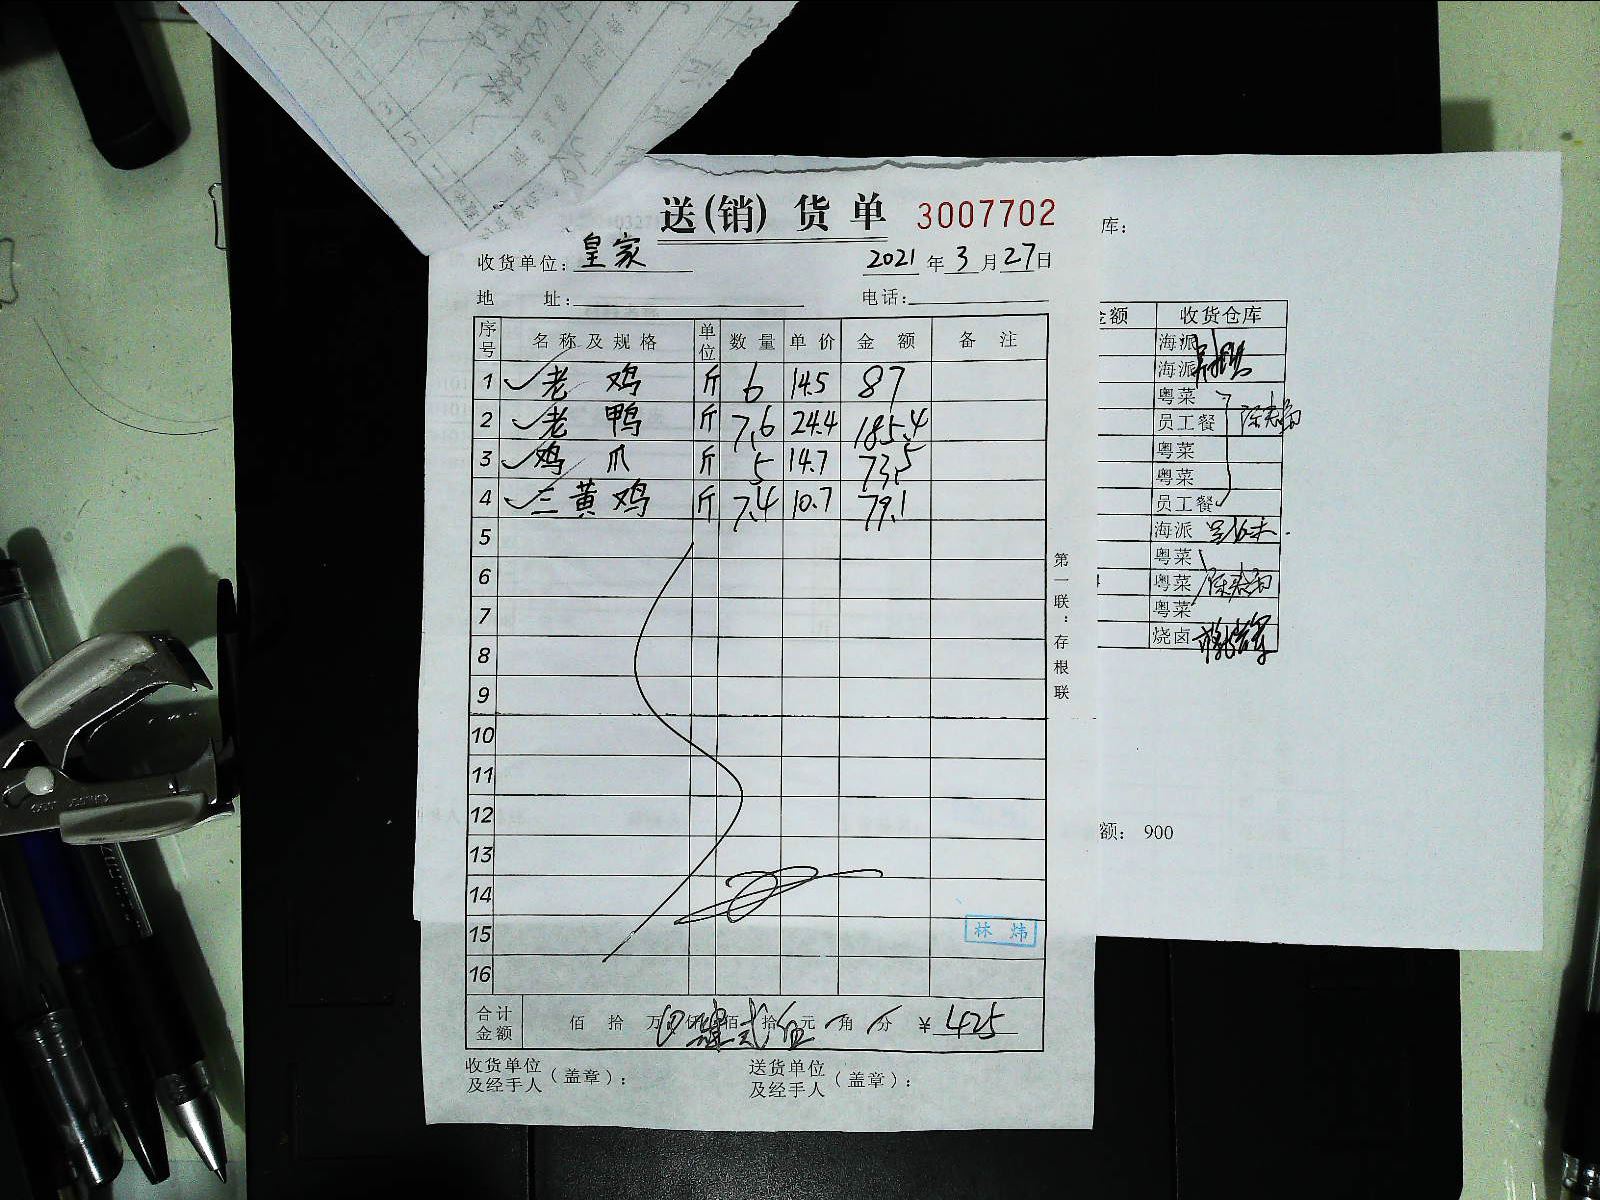 送(销)货单 3007702
收货单位: 皇家 2021年3月27日
地 址: 电话:
序号 名称及规格 单位 数量 单价 金额 备注
1 老鸡 斤 6 14.5 87
2 老鸭 斤 7.6 24.4 185.4
3 鸡爪 斤 5 14.7 73.5
4 三黄鸡 斤 7.4 10.7 79.1
5
6
7
8
9
10
11
12
13
14
15
16
林炜
合计金额 佰 拾 万 仟 佰 拾 元 角 分 ¥ 425
收货单位及经手人(盖章): 送货单位及经手人(盖章):
第一联:存根联
库:
金额 收货仓库
海派
海派
粤菜
员工餐
粤菜
粤菜
员工餐
海派
粤菜
粤菜
粤菜
烧卤
额: 900